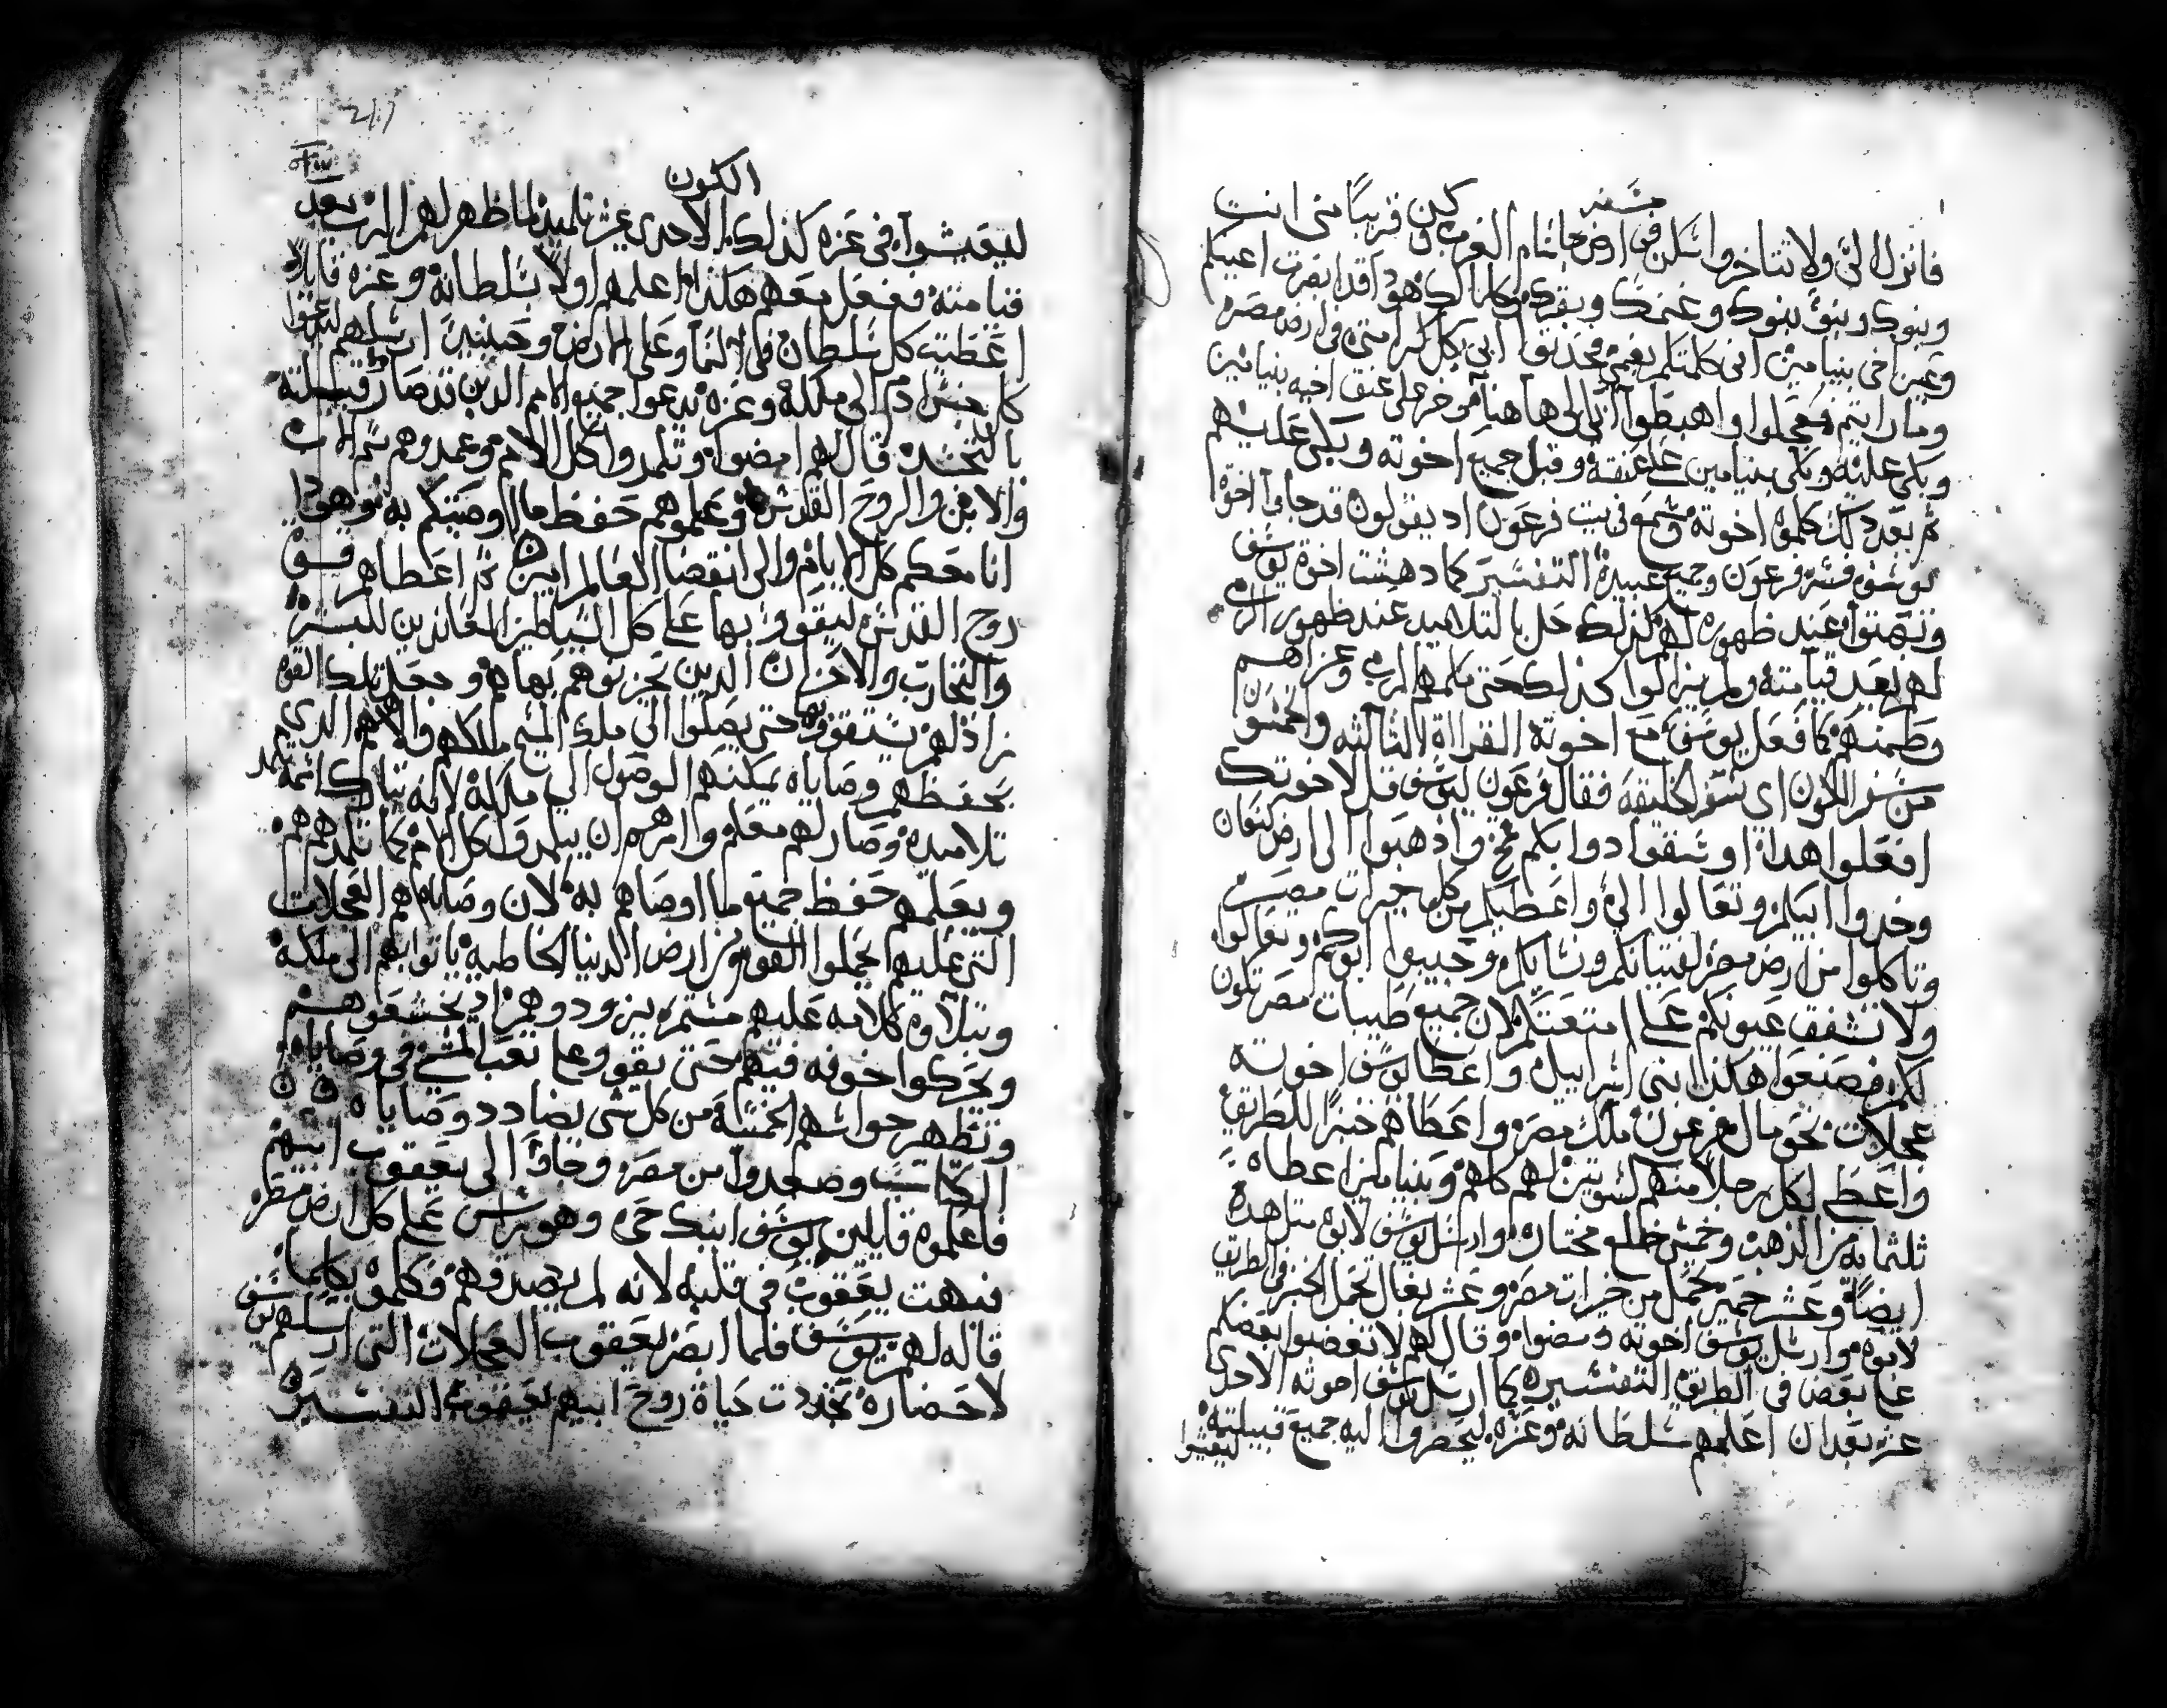 سفر
فانزل الي ولا تتاخر واسكن في ارض جاسام الغرب وكن قريبا مني انت
وبنوك وبنو بنوك وغنمك وبقرك وكلما لك هوذا قد ابصرت اعينكم
وعين اخي بنيامين اني كلمتكم بفمي فخذثوا ابي بكل كرامتي في ارض مصر
وما رايتم وعجلوا واهبطوا ابي الي هاهنا وخر علي عنق اخيه بنيامين
وبكي عليه وبكي بنيامين علي عنقه وقبل جميع اخوته وبكي عليهم
ثم بعد ذلك كلموه اخوته وسمع في بيت فرعون اذ يقولون قد جاوا اخوة
يوسف فسر فرعون وجميع عبيده التفسير كما دهشت اخوة يوسف
وتبهتوا عند ظهوره لهم كذلك حل بالتلاميذ عند ظهور الرب
لهم بعد قيامته ولم يزالوا كذلك حتي كلمهم الرب وعزاهم
وطمنهم كما فعل يوسف مع اخوته القراة الثالثه والخمسون
من سفر الكون اي سفر الخليقه فقال فرعون ليوسف قل لاخوتك
افعلوا هذا اوسقوا دوابكم قمح واذهبوا الي ارض كنعان
وخدوا ابيكم وتعالوا الي واعطيكم من كل خيرات مصر
وتاكلوا من ارض مصر لفتيانكم ونسايكم وجيبوا ابوكم وتعالوا
ولا تشفق عيونكم علي امتعتكم لان جميع طيبات مصر تكون
لكم فصنعوا هكذا بني اسراييل واعطا يوسف اخوته
عجلات نحو ما قال فرعون ملك مصر واعطاهم خبزا للطريق
واعطي لكل رجلا منهم لبوتين لهم كلهم وبنيامين اعطاه
ثلثمايه من الذهب وخمس خلع مختاره وارسل يوسف لابوه مثل هذه
ايضا وعشر حمير تحمل من خيرات مصر وعشر بغال تحمل الخبز في الطريق
لابوه وارسل يوسف اخوته ومضوا وقال لهم لا تغضبوا بعضكم
علي بعض في الطريق التفسير كما ارسل يوسف اخوته الاحدي
عشر بعد ان اعلمهم سلطانه وعزه ليحضروا اليه جميع قبيلته
ليعيشوا
الكون
ليعيشوا في عزه كذلك الاحدي عشر تلميذ لما ظهر لهم الرب بعد
قيامته ففعل معهم هكذا اعلمهم اولا بسلطانه وعزه قايلا
اعطيت كل سلطان في السما وعلي الارض وحينيذ ارسلهم ليدعوا
كل جنس ادم الي ملكه وعزه يدعوا جميع الامم الذين قد صاروا قبيلته
بالتجسد قال لهم امضوا وتلمدوا كل الامم وعمدوهم بسم الاب
والابن والروح القدس وعلموهم حفظ ما اوصيتكم به وهوذا
انا معكم كل الايام والي انقضا العالم امين ثم اعطاهم قوة
روح القدس ليتقووا بها علي كل الشياطين المعاندين للبشر
والتجارب والاحزان الذين تحزنوهم بها وجعل تلك القوه
زاد لهم يتقووا بها حتي يصلوا الي ملك المسيح ملكهم والاههم الدي
بحفظهم وصاياه يمكنهم الوصول الي ملكه لانه تبارك اسمه
تلاميده وصار لهم معلم وامرهم ان يتلمدوا كل الامم كما تلمدهم هم
ويعلمهم حفظ جميع ما اوصاهم به لان وصاياه هم العجلات
التي عليهم يحملوا القوه من ارض الدنيا الخاطيه ياتوا بهم الي ملكه
وبتلاوة كلامه عليهم مستمره يزودوهم اد يخشعوهم
ويحركوا خوفه فيهم حتي يقووا علي تعب المشي في وصاياه
وتظهر حواسهم الخمسة من كل شي يضادد وصاياه
الكتاب وصعدوا من مصر وجاوا الي يعقوب ابيهم
فاعلموه قايلين يوسف ابنك حي وهو راس علي كل ارض مصر
فبهت يعقوب في قلبه لانه لم يصدقهم فكلموه بكلما
قاله لهم يوسف فلما ابصر يعقوب العجلات التي ارسلهم يوسف
لاحضاره تجددت حياة روح ابيهم يعقوب التفسير